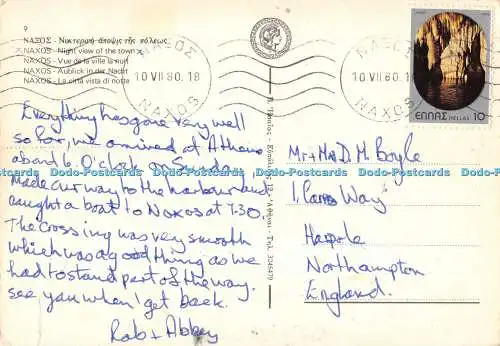 9
ΝΑΞΟΣ - Νυκτερινή ἄποψις τῆς πόλεως.
NAXOS - Night view of the town
NAXOS - Vue de la ville la nuit
NAXOS - Aublick in der Nacht
NAXOS - La città vista di notte
ΝΑΞΟΣ
10 VII 80. 18
NAXOS
ΝΑΞΟΣ
10 VII 80. 1
NAXOS
ΕΛΛΑΣ HELLAS 10
Everything has gone very well
so far, we arrived at Athens
about 6. O'clock on Sunday
Made our way to the harbour and
caught a boat to Naxos at 7.30.
The crossing was very smooth
which was a good thing as we
had to stand part of the way.
see you when I get back.
Rob + Abbey
Ἀθῆναι - Τηλ. 3245470
Mr + Mrs D. M. Boyle
1, Way
Harpole
Northampton
England.
Dodo-Postcards Dodo-Postcards Dodo-Postcards Dodo-Postcards Dodo-Postcards